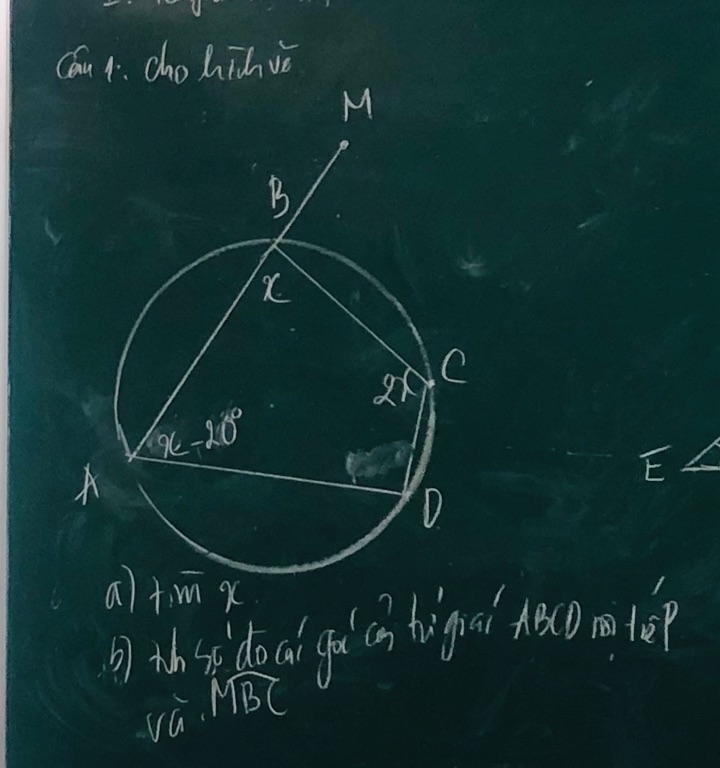 Câu 1: cho hình vẽ
M
B
x
C
2x
x - 20°
E
A
D
a) tìm x
b) tính số đo các góc của tứ giác ABCD nội tiếp
và MBC